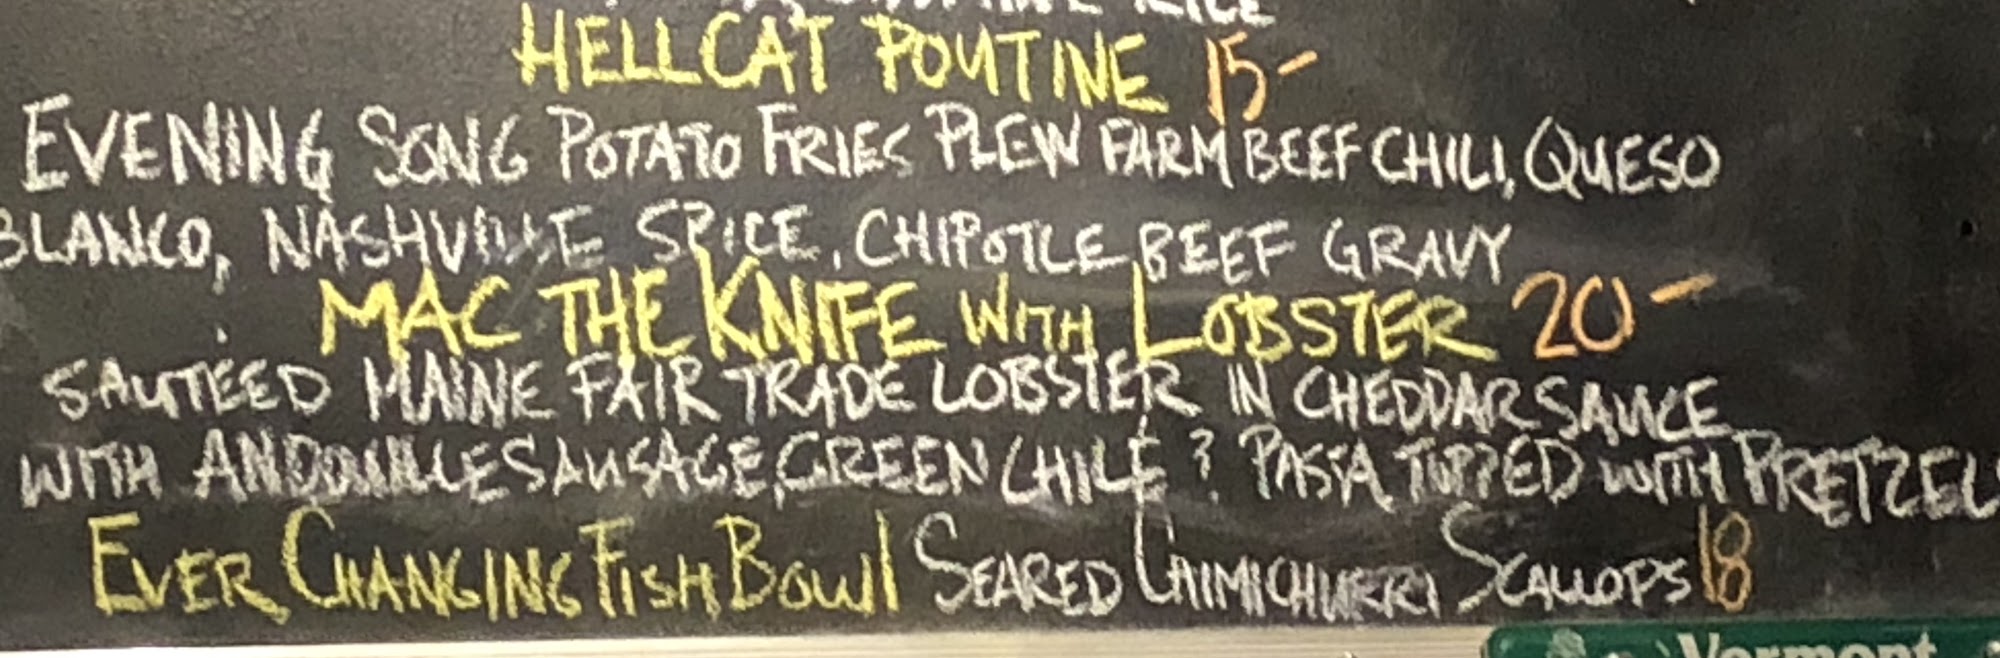 RICE
HELLCAT POUTINE 15-
EVENING SONG POTATO FRIES PLEW FARM BEEF CHILI, QUESO
BLANCO, NASHVILLE SPICE, CHIPOTLE BEEF GRAVY
MAC THE KNIFE WITH LOBSTER 20-
SAUTEED MAINE FAIR TRADE LOBSTER IN CHEDDAR SAUCE
WITH ANDOUILLE SAUSAGE, GREEN CHILE ? PASTA TOPPED WITH PRETZELS
EVER CHANGING FISH BOWl SEARED CHIMICHURRI SCALLOPS 18
Vermont